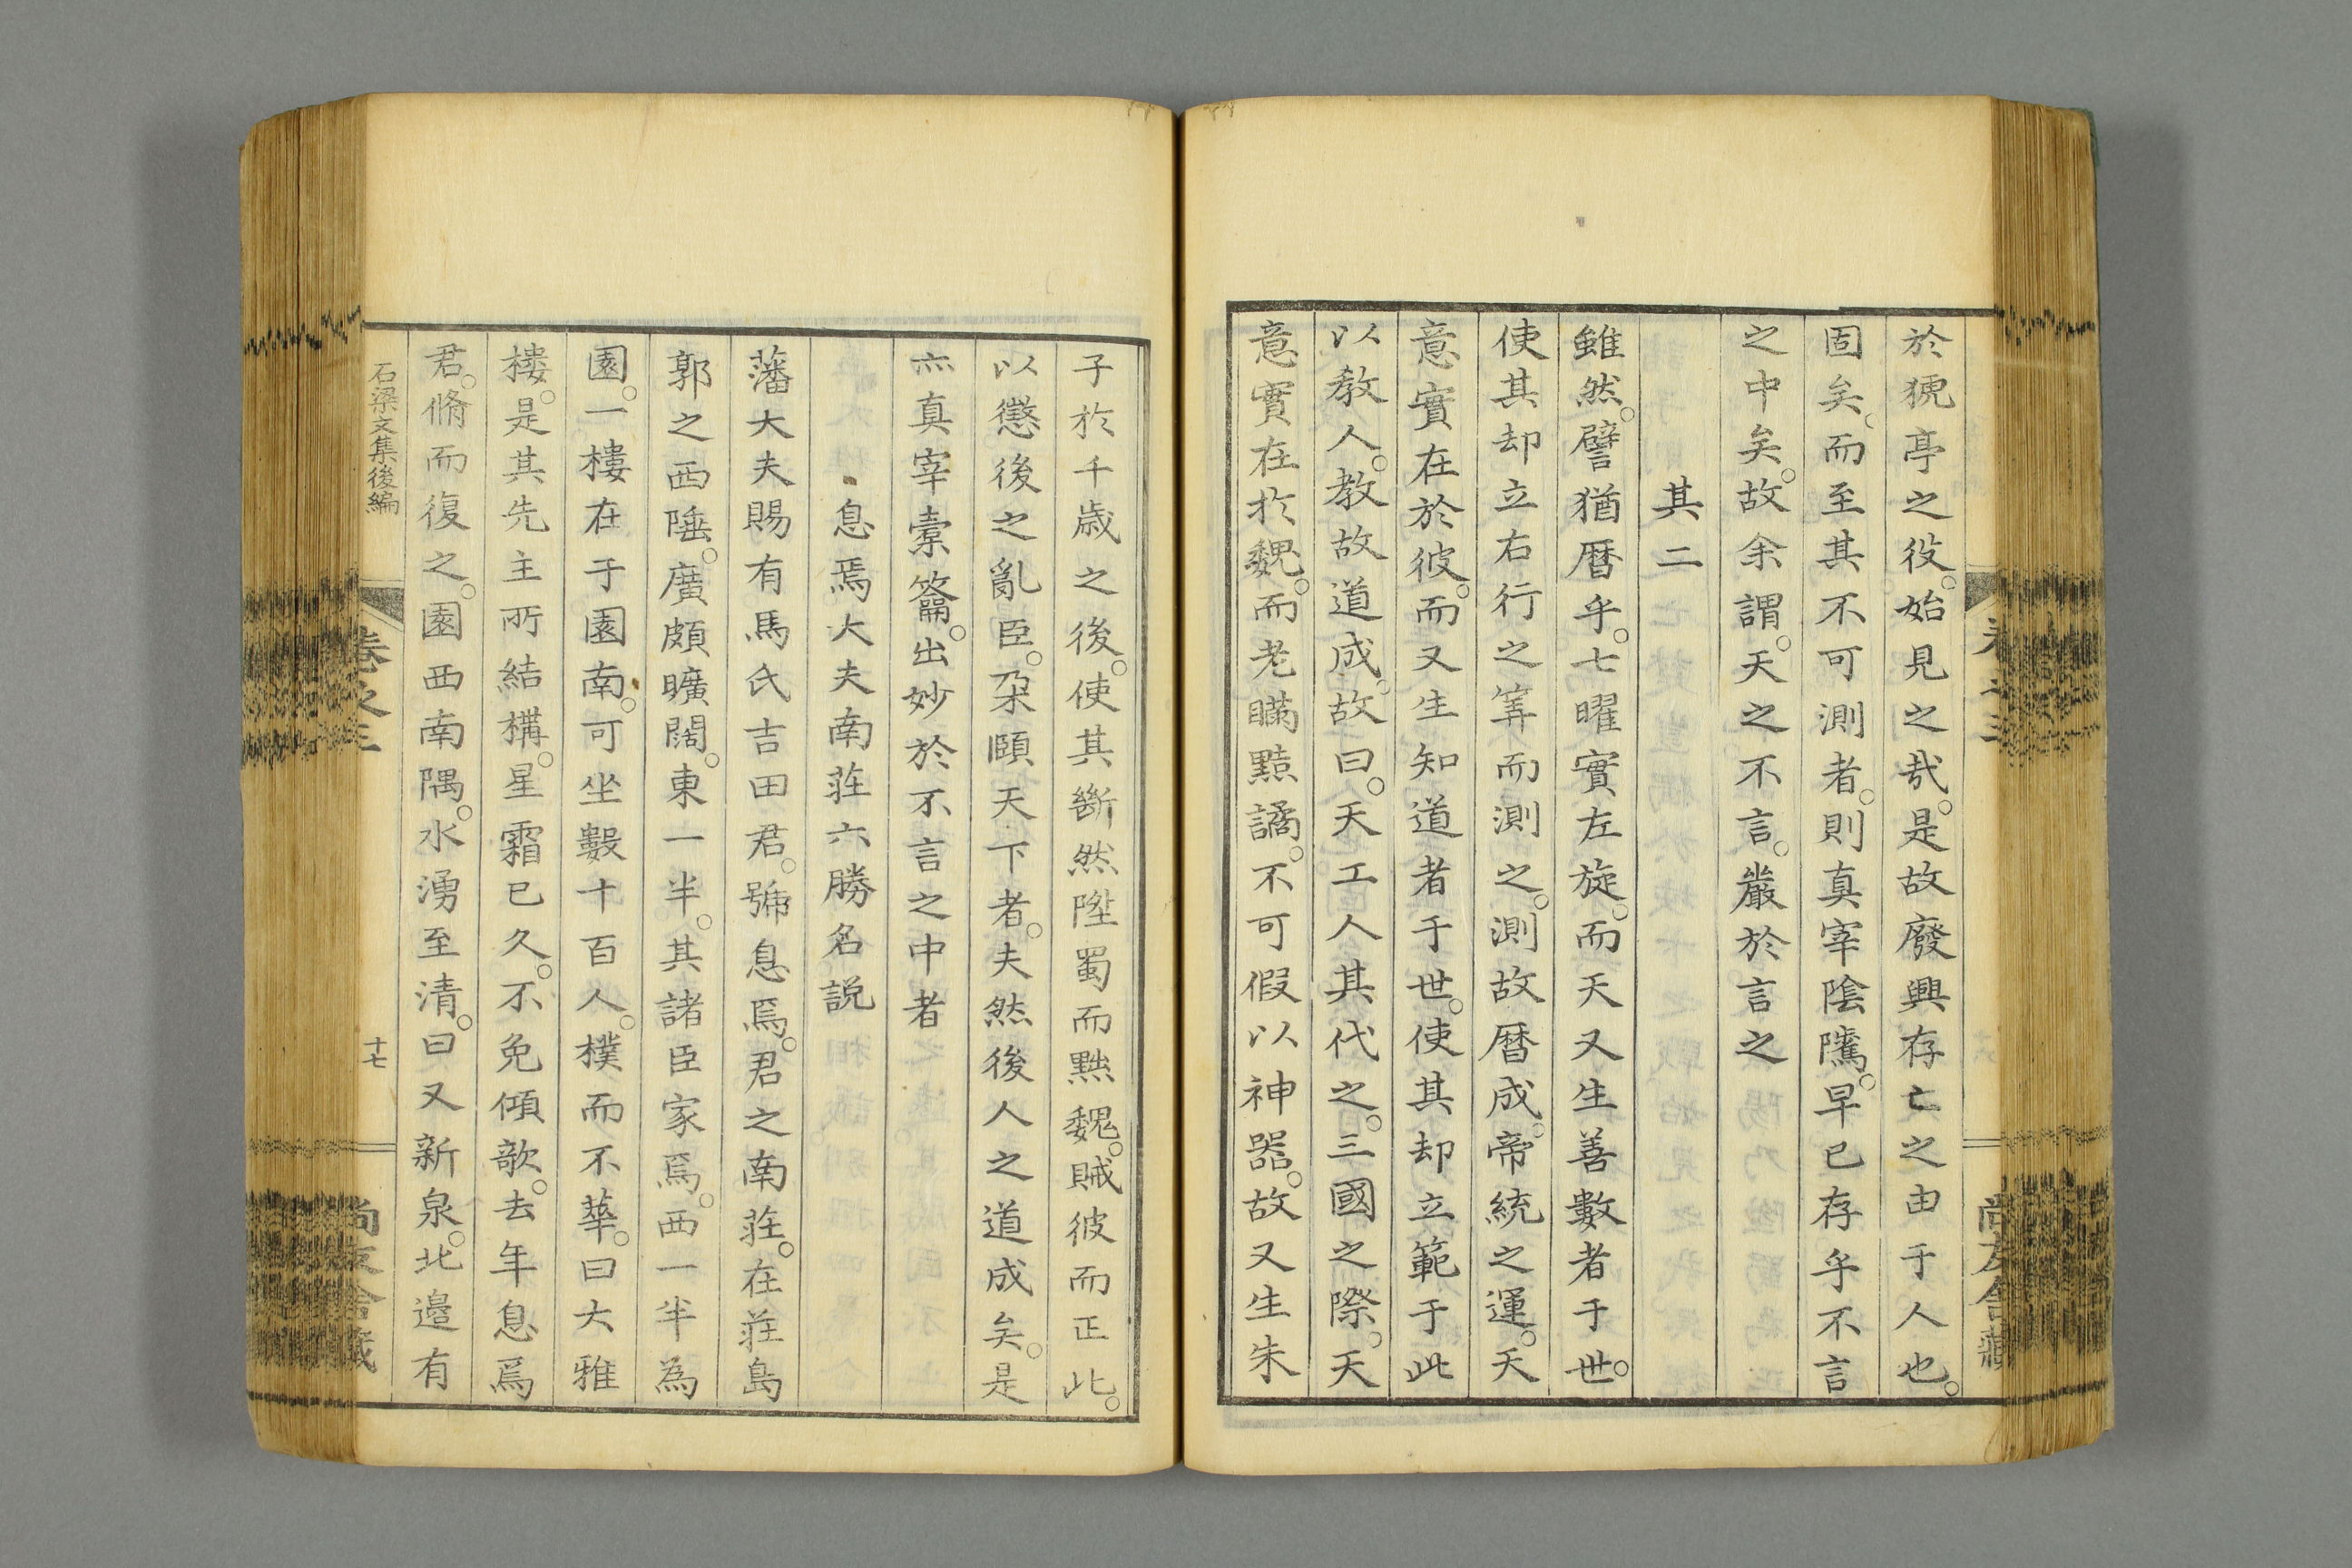 於猇亭之役。始見之哉。是故廢興存亡之由于人也。
固矣、而至其不可測者。則真宰陰隲。早已存乎不言
之中矣。故余謂。天之不言。嚴於言之
其二
雖然。譬猶暦乎。七曜實左旋。而天又生善數者于世。
使其却立右行之筭而測之。測故暦成。帝統之運。天
意實在於彼。而又生知道者于世。使其却立範于此
以教人。教故道成。故曰。天工人其代之。三國之際。天
意實在於魏。而老瞞黠譎。不可假以神器。故又生朱
子於千歳之後。使其斷然陞蜀而黜魏。賊彼而正此。
以懲後之亂臣。朶頤天下者。夫然後人之道成矣。是
亦真宰橐籥。出妙於不言之中者
息焉大夫南荘六勝名説
藩大夫賜有馬氏吉田君。號息焉。君之南荘。在荘島
郭之西陲。廣頗曠闊。東一半。其諸臣家焉。西一半為
園。一樓在于園南。可坐數十百人。樸而不華。曰大雅
樓。是其先主所結構。星霜已久。不免傾欹。去年息焉
君。脩而復之。園西南隅。水湧至清。曰又新泉。北邉有
石梁文集後編
卷之三
十七
尚友舎藏